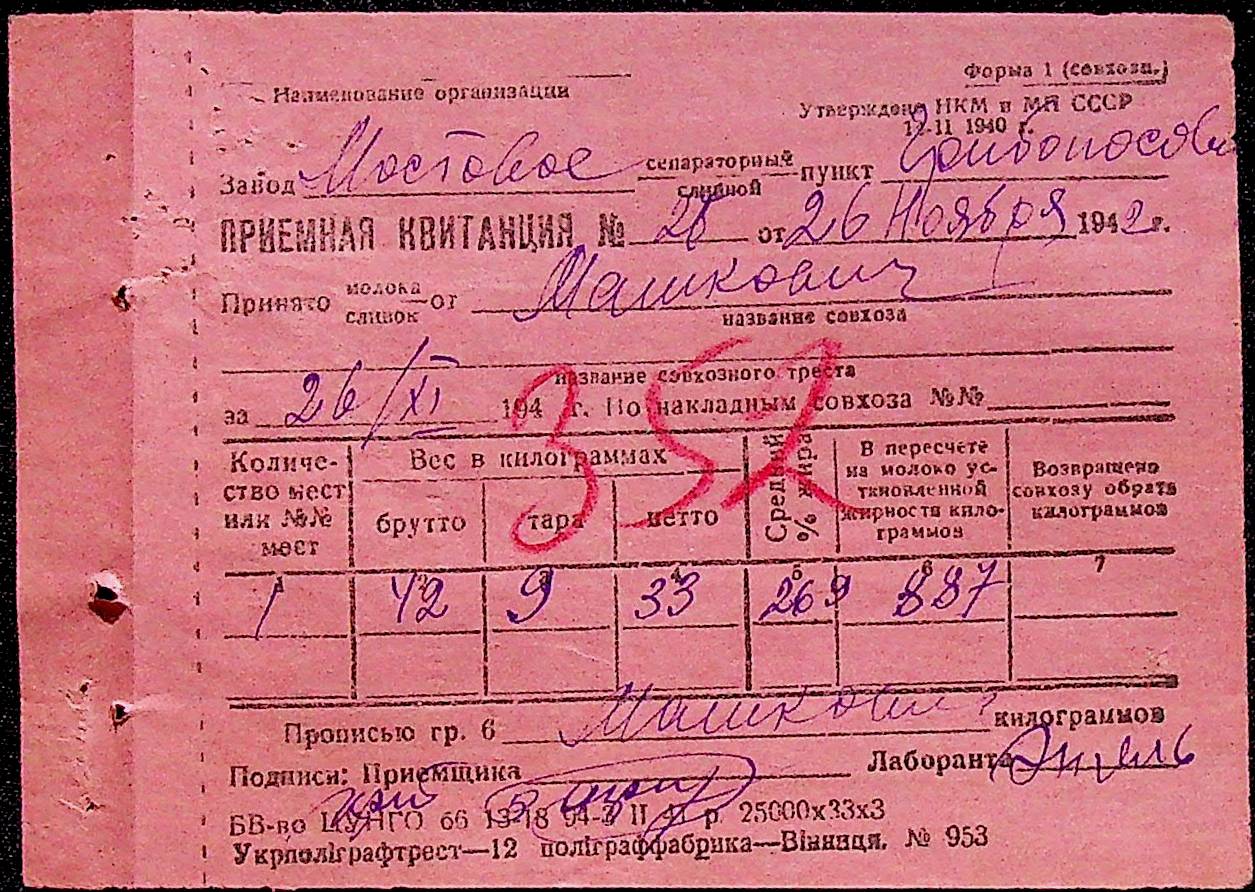 Форма 1 (совхозн.)
Наименование организации
Утверждено НКМ и МП СССР
12-11 1940 г.
Завод Мостовое сепараторный сливной пункт
ПРИЕМНАЯ КВИТАНЦИЯ № 28 от 26 Ноября 1942 г.
Принято молока сливок от Машкович
название совхоза
название совхозного треста
за 26/XI 194 г. По накладным совхоза №№
352
Количе- Вес в килограммах Средний % жира В пересчете Возвращено
ство мест на молоко ус- совхозу обрат
или №№ брутто тара нетто тановленной килограммов
мест жирности кило-
граммов
1 2 3 4 5 6 7
1 42 9 33 269 887
Прописью гр. 6 Машкович килограммов
Подписи: Приемщика Лаборанта
БВ-во ЦУНГО 66 13-18 94-3 II 41 р. 25000х33х3
Укрполіграфтрест—12 поліграффабрика—Вінниця. № 953